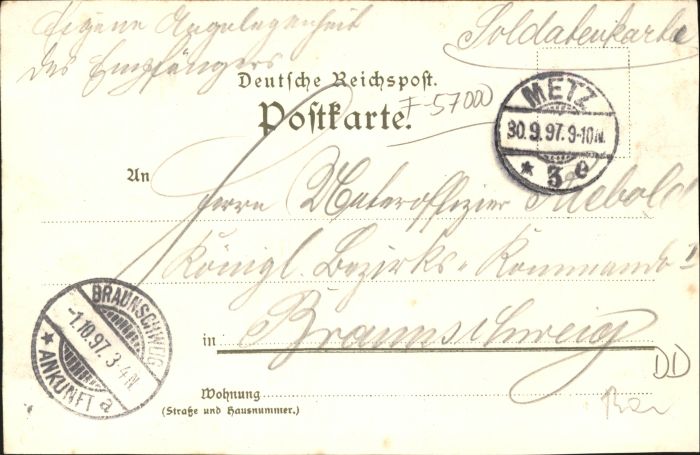 Eigene Angelegenheit
des Empfängers
Soldatenkarte
Deutsche Reichspost.
Postkarte.
F-57000
METZ
30.9.97.9-10N.
* 3 e
An Herrn Unteroffizier
Königl. Bezirks-Kommando I
in Braunschweig
BRAUNSCHWEIG
-1.10.97. 3-4N.
* ANKUNFT a
DD
Wohnung
(Straße und Hausnummer.)